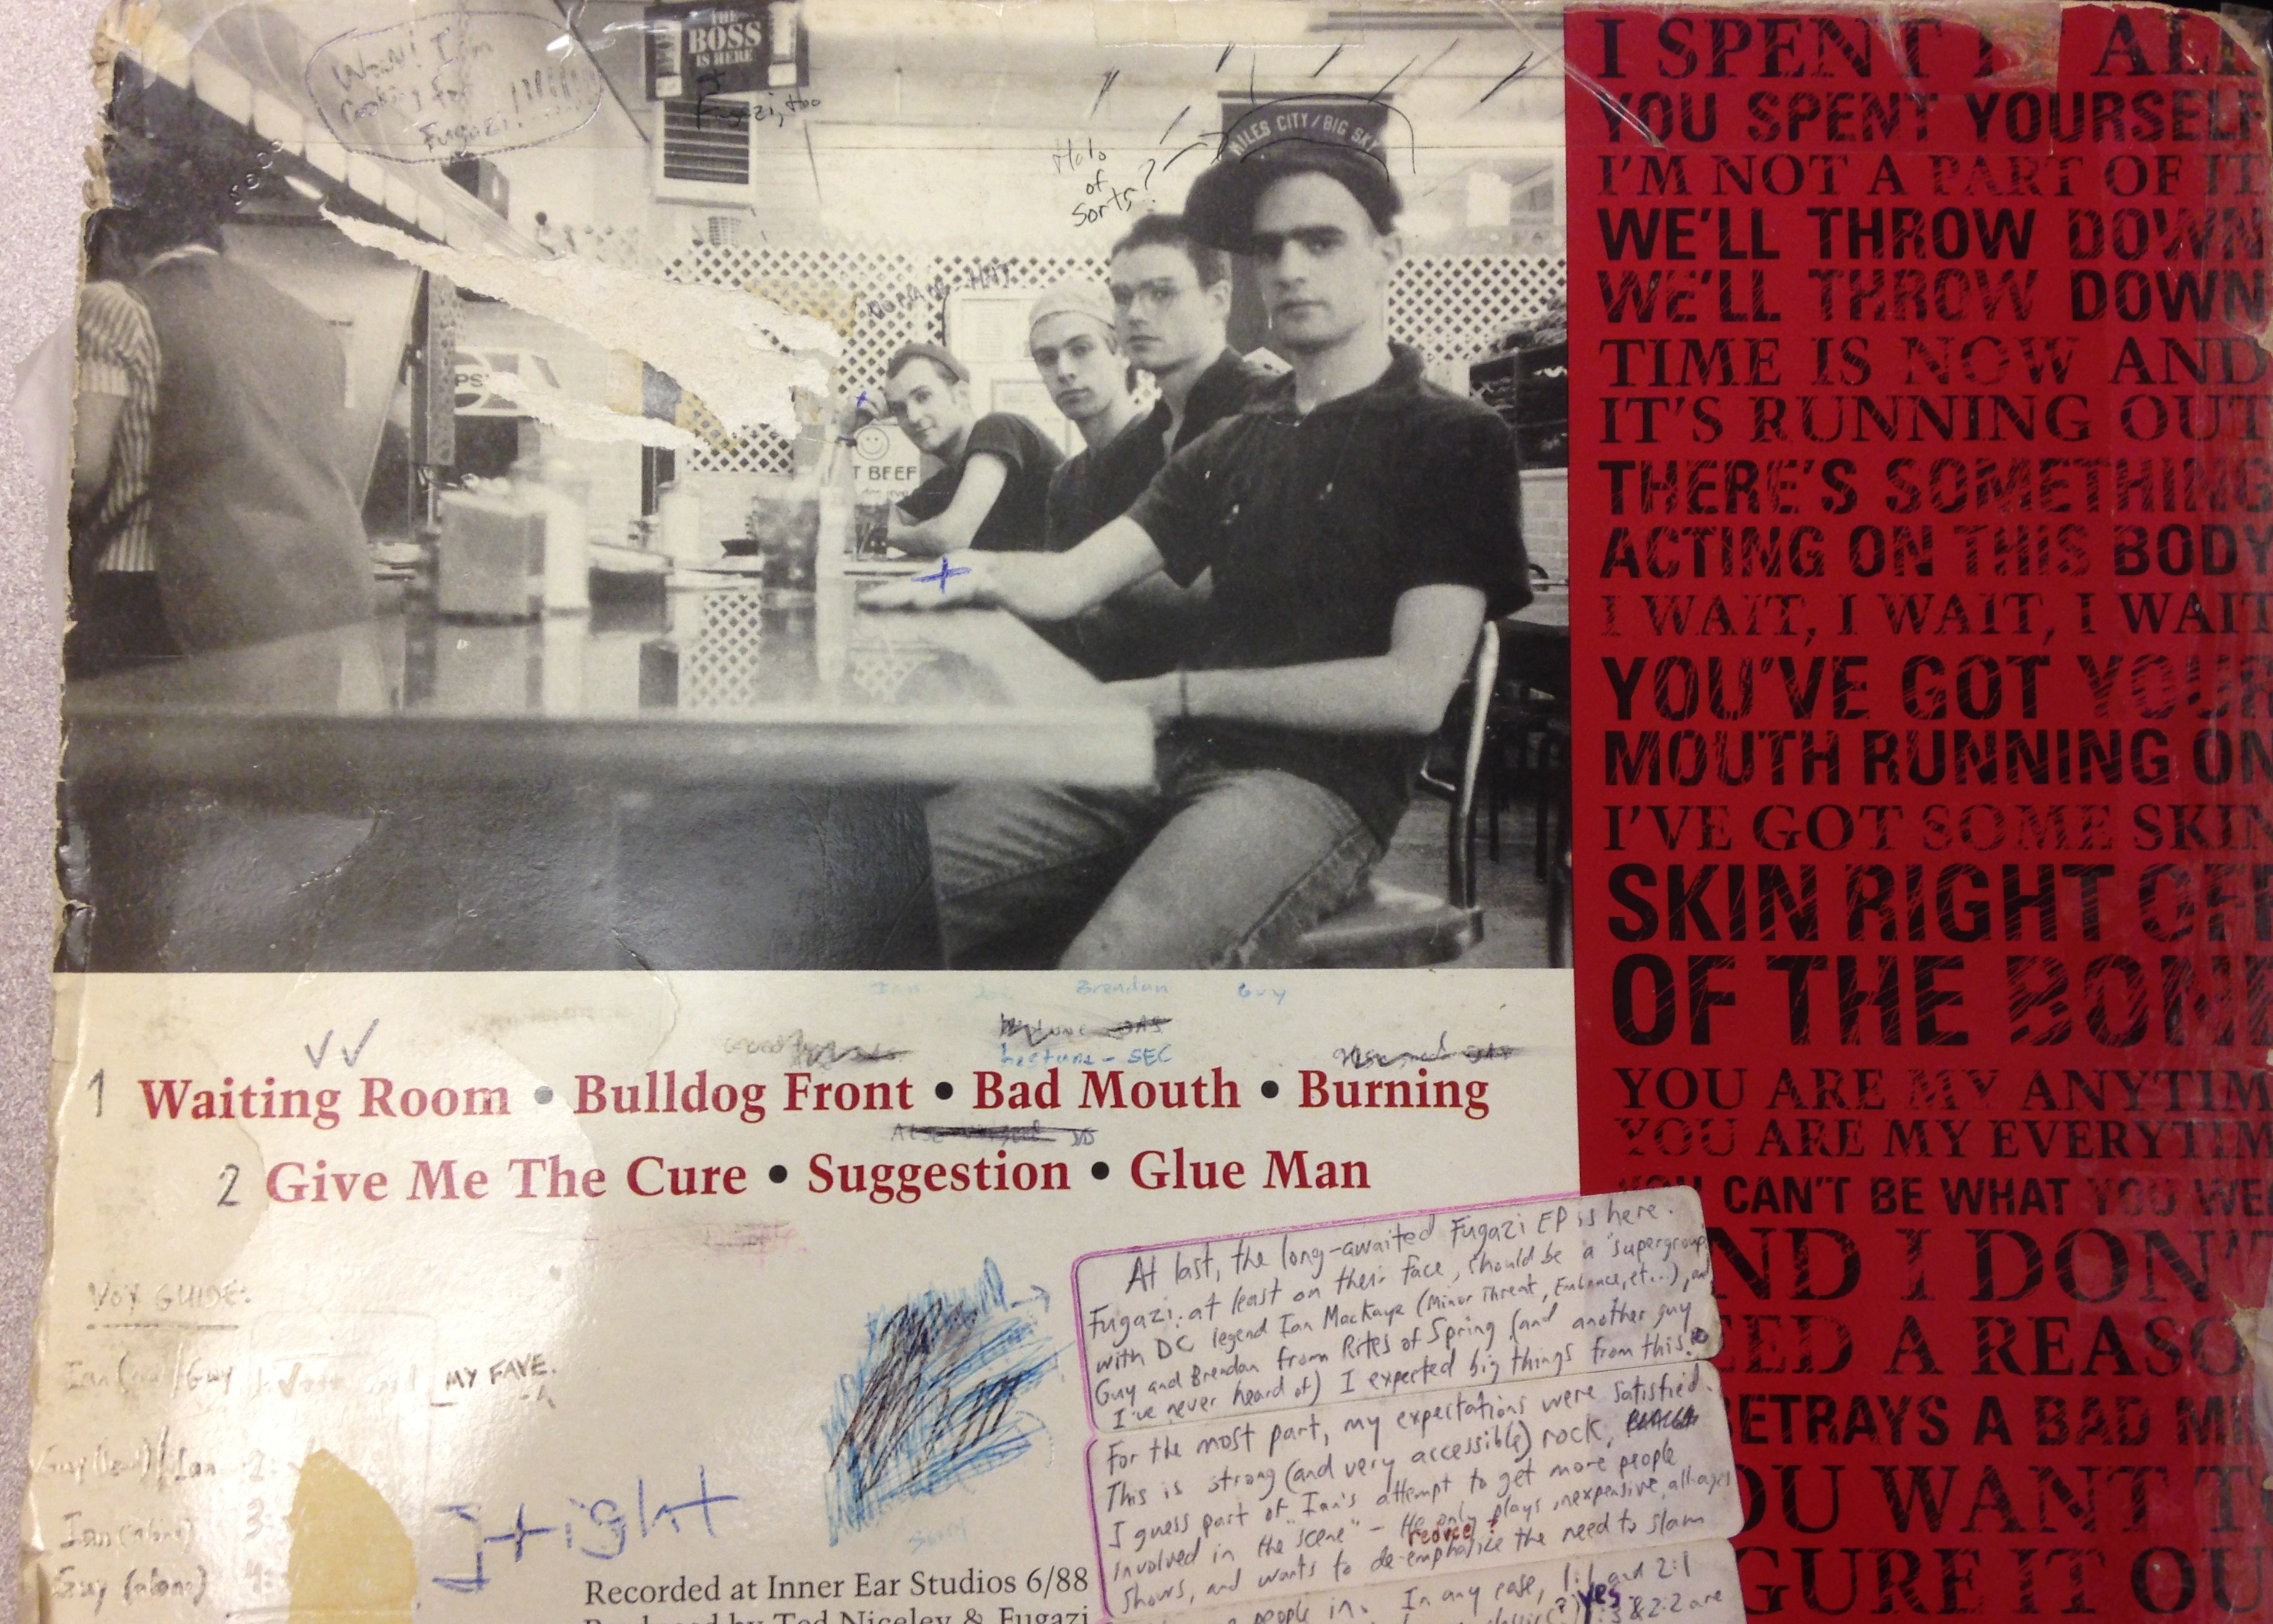 Wow! I am
Cooking for
Fugazi!
THE
BOSS
IS HERE
Fugazi, too
MILES CITY/BIG SKY
Halo
of
Sorts?
T BEEF
I SPENT ALL
YOU SPENT YOURSELF
I'M NOT A PART OF IT
WE'LL THROW DOWN
WE'LL THROW DOWN
TIME IS NOW AND
IT'S RUNNING OUT
THERE'S SOMETHING
ACTING ON THIS BODY
I WAIT, I WAIT, I WAIT
YOU'VE GOT YOUR
MOUTH RUNNING ON
I'VE GOT SOME SKIN
SKIN RIGHT OFF
OF THE BONE
YOU ARE MY ANYTIM
YOU ARE MY EVERYTIM
YOU CAN'T BE WHAT YOU WE
ND I DON'T
EED A REASO
BETRAYS A BAD MI
OU WANT T
GURE IT OU
Ian Joe Brendan Guy
SEC
1 Waiting Room • Bulldog Front • Bad Mouth • Burning
2 Give Me The Cure • Suggestion • Glue Man
VOX GUIDE:
Ian /Guy 1: MY FAVE.
Guy (lead)/Ian 2:
Ian (alone) 3:
Guy (alone) 4:
Sorry
Recorded at Inner Ear Studios 6/88
Produced by Ted Niceley & Fugazi
At last, the long-awaited Fugazi EP is here.
Fugazi, at least on their face, should be a "supergroup"
with DC legend Ian MacKaye (Minor Threat, Embrace, et..), and
Guy and Brendan from Rites of Spring (and another guy
I've never heard of) I expected big things from this.
For the most part, my expectations were satisfied.
This is strong (and very accessible) rock,
I guess part of Ian's attempt to get more people
involved in the "scene" - He only plays inexpensive, all-ages
reduce?
shows, and wants to de-emphasize the need to slam
people in. In any case, 1:1 and 2:1
yes
classic(?) 1:3 & 2:2 are